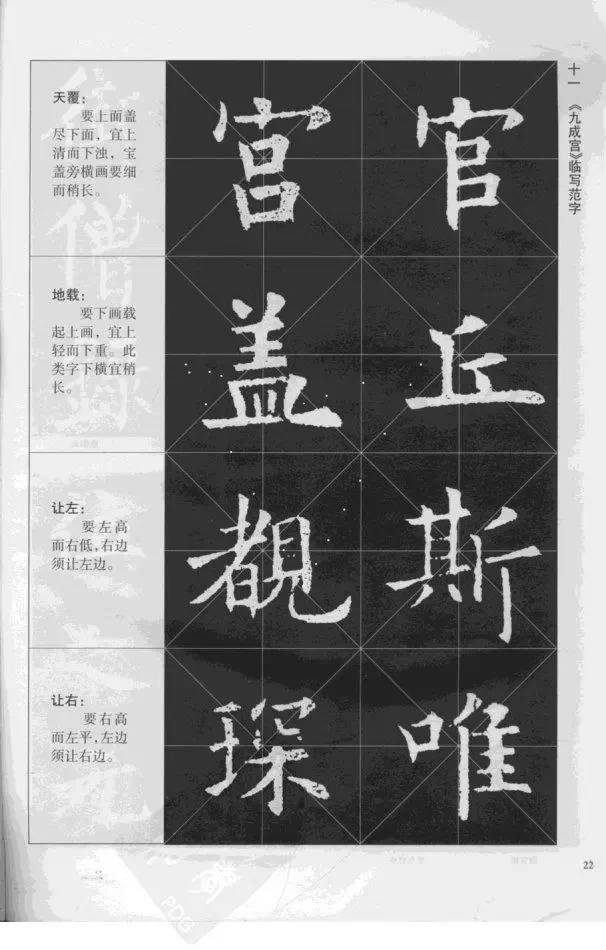 十一 《九成宫》临写范字
天覆：
要上面盖
尽下面，宜上
清而下浊，宝
盖旁横画要细
而稍长。
宫 官
地载：
要下画载
起上画，宜上
轻而下重。此
类字下横宜稍
长。
盖 丘
让左：
要左高
而右低，右边
须让左边。
覩 斯
让右：
要右高
而左平，左边
须让右边。
琛 唯
22
PDG